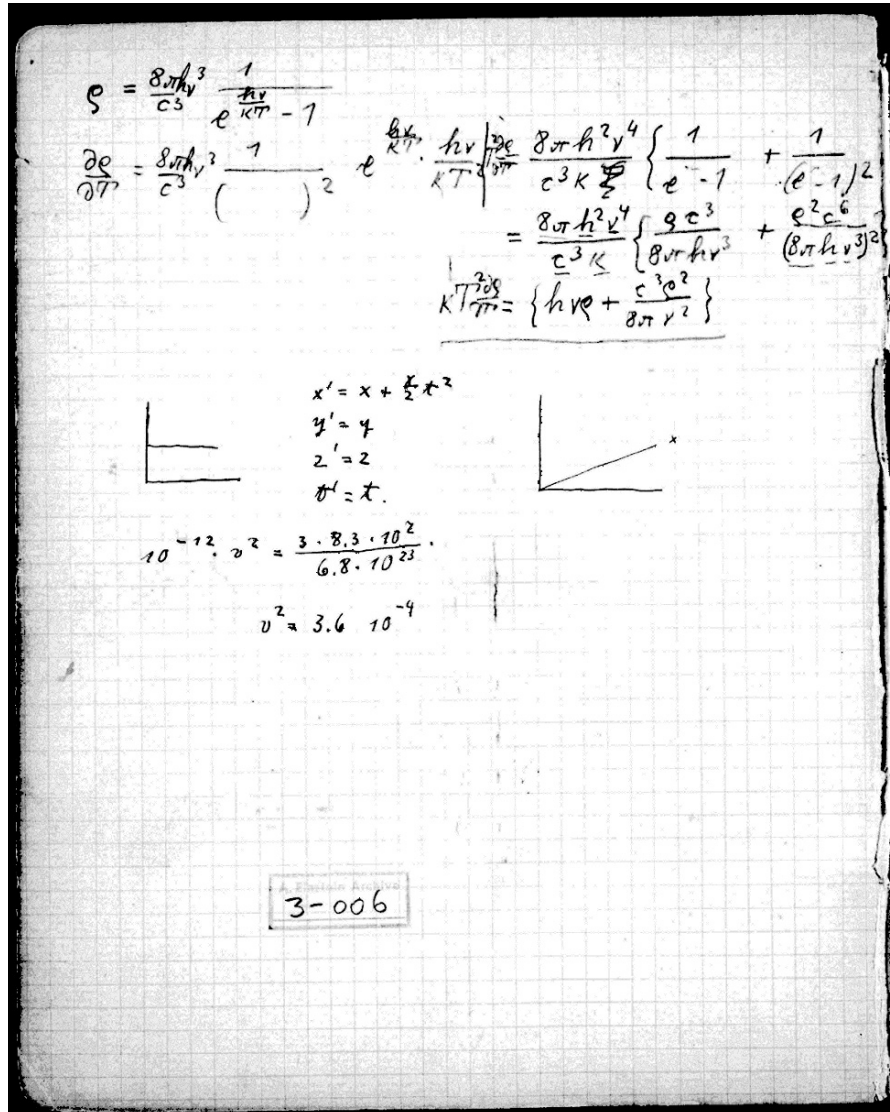 ρ = 8πhν³/c³ 1/(e^(hν/KT) - 1)
∂ρ/∂T = 8πhν³/c³ 1/( )² e^(hν/KT) · hν/KT² | T²∂ρ/∂T 8πh²ν⁴/c³K { 1/(e - 1) + 1/(e - 1)²
= 8πh²ν⁴/c³K { ρc³/8πhν³ + ρ²c⁶/(8πhν³)² }
KT²∂ρ/∂T = { hνρ + c³ρ²/8πν² }
x' = x + x/2 t²
y' = y
z' = z
t' = t.
x
10⁻¹² · v² = 3 · 8.3 · 10²/6.8 · 10²³ .
v² = 3.6 10⁻⁴
A. Einstein Archive
3-006